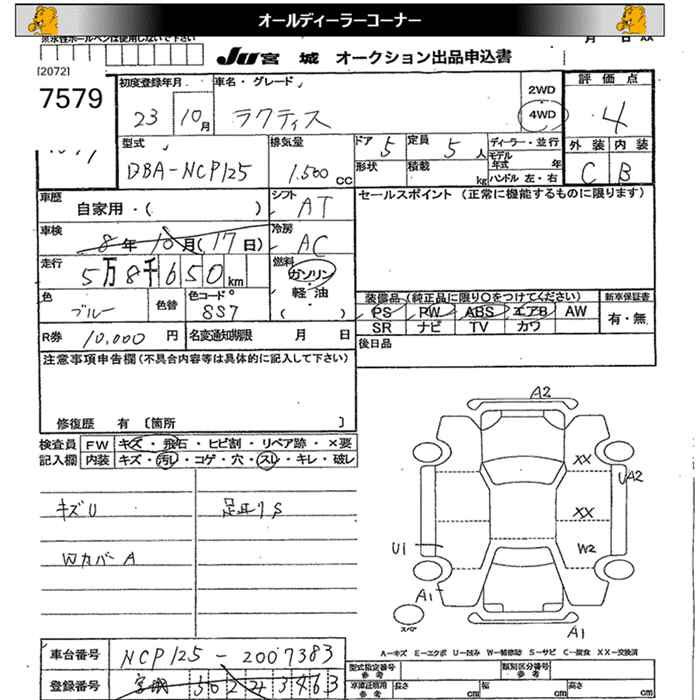 オールディーラーコーナー
JU 宮城 オークション出品申込書
月 日
[2072]
7579
初度登録年月 車名・グレード 評価点
23 10月 ラクティス 2WD 4WD 4
型式 排気量 ドア 定員 ディーラー・並行 外装 内装
DBA-NCP125 1,500cc 5 5人 モデル年式 年 C B
形状 積載 kg ハンドル 左・右
車歴 シフト セールスポイント (正常に機能するものに限ります)
自家用・( ) AT
車検 冷房
8年10月(17日) AC
走行 燃料
5万8千650km ガソリン・軽油 ( )
色 色替 色コード 装備品(純正品に限り〇をつけてください) 新車保証書
ブルー 8S7 PS PW ABS エアB AW 有・無
SR ナビ TV カワ
R券 10,000円 名変通知期限 月 日 後日品
注意事項申告欄(不具合内容等は具体的に記入して下さい)
修復歴 有〔箇所 〕
検査員 FW キズ・飛石・ヒビ割・リペア跡・×要
記入欄 内装 キズ・汚レ・コゲ・穴・スレ・キレ・破レ
キズU
WカバーA
A2
XX
UA2
XX
U1 W2
A1
スペア
A1
A-キズ E-エクボ U-凹み W-補修跡 S-サビ C-腐食 XX-交換済
車台番号 NCP125-2007383
登録番号 宮城 3463
型式指定番号 参考 類別区分番号 参考
長さ cm 幅 cm 高さ cm